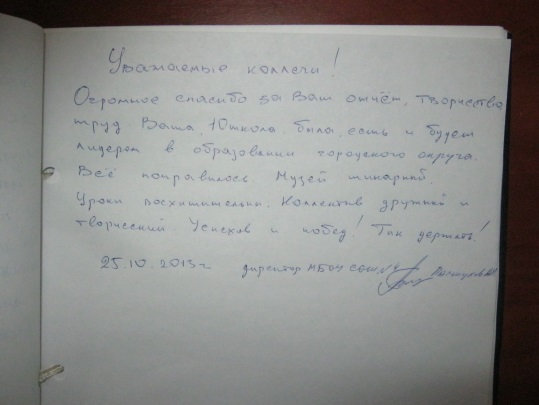 Уважаемые коллеги!
Огромное спасибо за Ваш отчёт, творчество
труд Ваша 10 школа была, есть и будет
лидером в образовании городского округа.
Всё понравилось. Музей шикарный.
Уроки восхитительны. Коллектив дружный и
творческий Успехов и побед! Так держать!
25.10.2013г директор МБОУ СОШ №